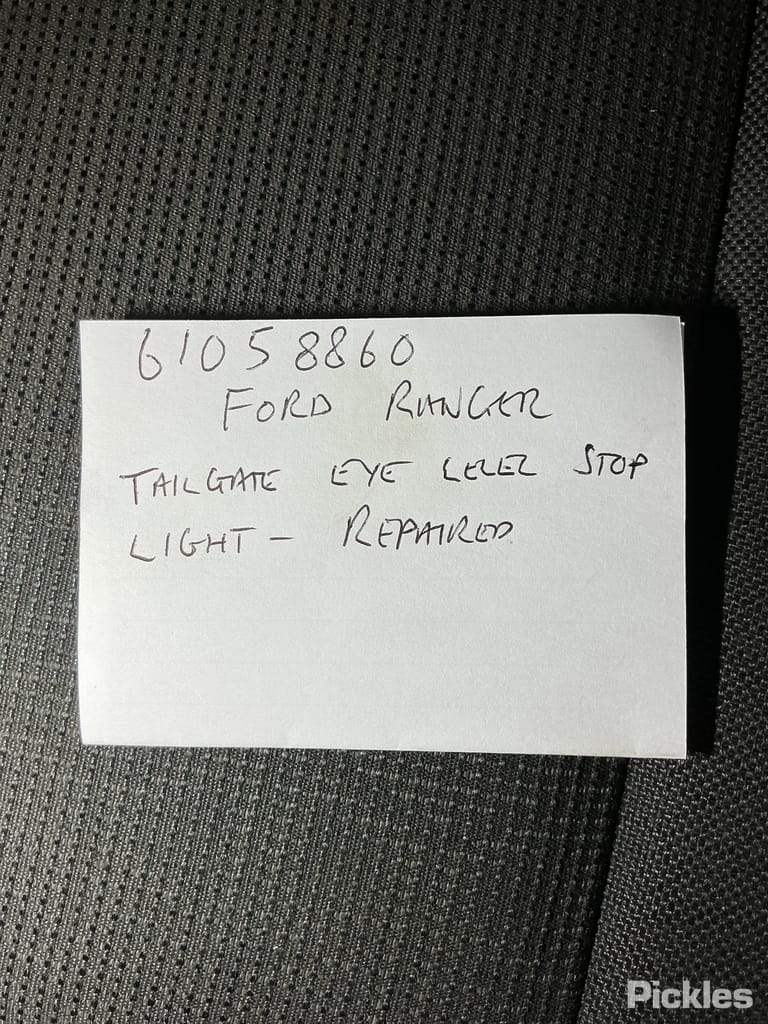 61058860
FORD RANGER
TAILGATE EYE LEVEL STOP
LIGHT - REPAIRED
Pickles